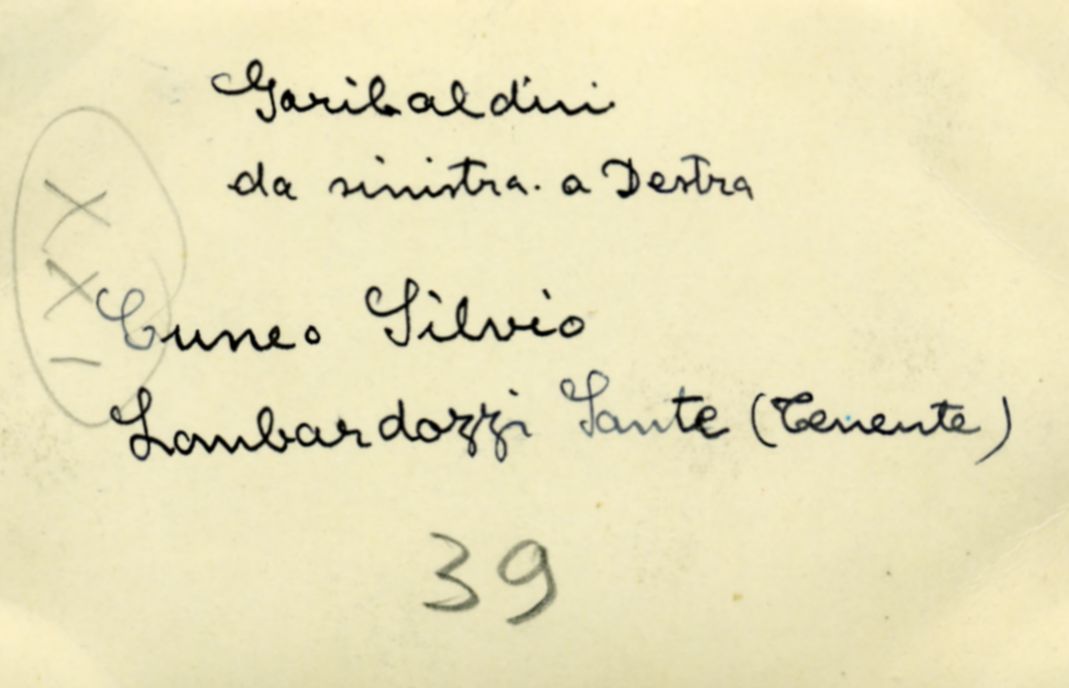 Garibaldini
da sinistra. a Destra
Cuneo Silvio
Lombardozzi Sante (Tenente)
39
XXI